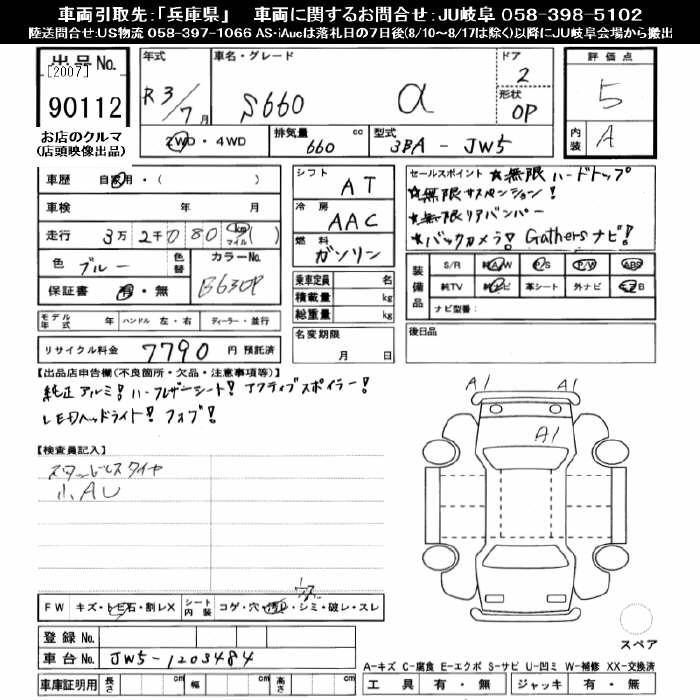 車両引取先：「兵庫県」　車両に関するお問合せ：JU岐阜 058-398-5102
陸送問合せ：US物流 058-397-1066 AS・iAucは落札日の7日後(8/10～8/17は除く)以降にJU岐阜会場から搬出
出品No.
[2007]
90112
お店のクルマ
(店頭映像出品)
年式 車名・グレード ドア
R3/7月 S660 α 2
形状
OP
2WD・4WD 排気量 660 cc 型式 3BA - JW5
評価点
5
内装 A
車歴 自家用・( )
車検 年 月
走行 3万 2千 0 8 0 km マイル ( )
色 ブルー 色替 カラーNo. B630P
保証書 有・無
モデル年式 年 ハンドル 左・右 ディーラー・並行
リサイクル料金 7790 円 預託済
シフト AT
冷房 AAC
燃料 ガソリン
乗車定員 名
積載量 kg
総重量 kg
名変期限
月 日
セールスポイント ☆無限 ハードトップ
☆無限サスペンション！
☆無限リアバンパー
☆バックカメラ！ Gathersナビ！
装備品 S/R 純A/W P/S P/W ABS
純TV 純ナビ 革シート 外ナビ エアB
ナビ型番：
後日品
【出品店申告欄(不良箇所・欠品・注意事項等)】
純正アルミ！ハーフレザーシート！アクティブスポイラー！
LEDヘッドライト！フォグ！
【検査員記入】
スタッドレスタイヤ
小AU
FW キズ・トビ石・割レX シート内装 コゲ・穴・汚レ・シミ・破レ・スレ
登録No.
車台No. JW5-1203484
車庫証明用 長さ cm 幅 cm 高さ cm
A1 A1
A1
スペア
A-キズ C-腐食 E-エクボ S-サビ U-凹ミ W-補修 XX-交換済
工具 有・無 ジャッキ 有・無